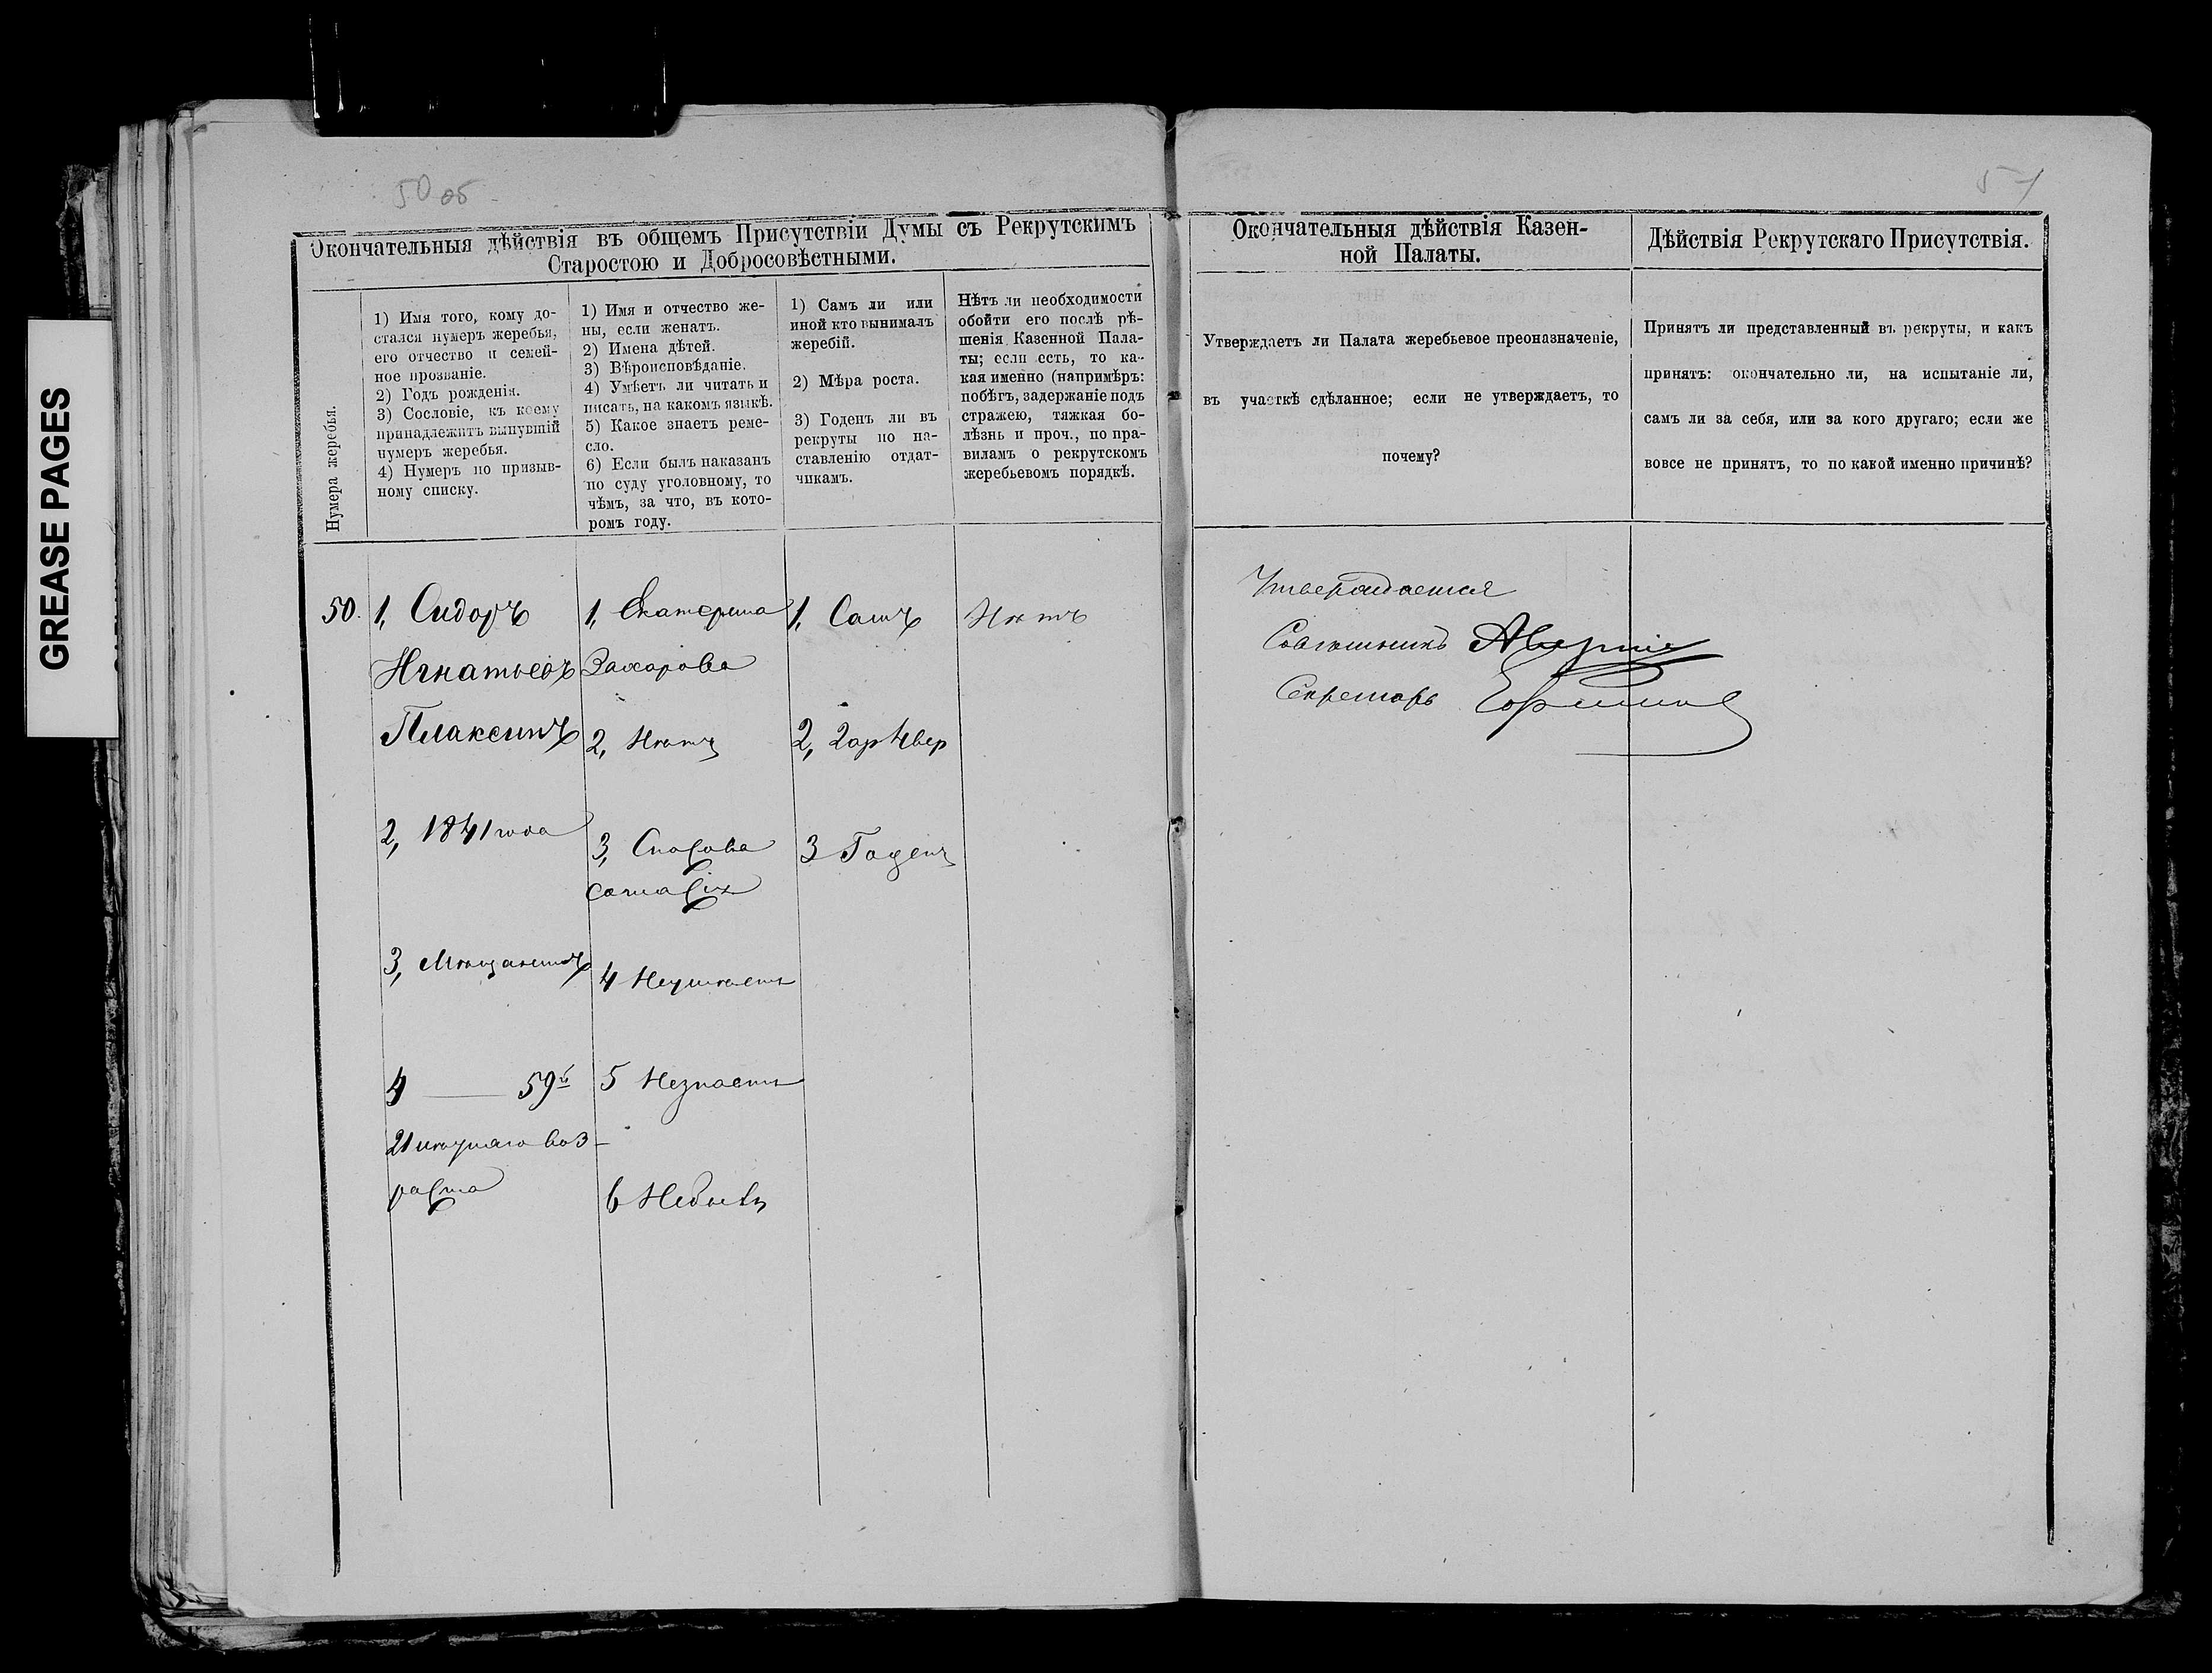 GREASE PAGES
50 об
51
Окончательныя дѣйствія въ общемъ Присутствіи Думы съ Рекрутскимъ
Старостою и Добросовѣстными.
Нумера жеребья.
1) Имя того, кому до-
стался нумеръ жеребья,
его отчество и семей-
ное прозваніе.
2) Годъ рожденія.
3) Сословіе, къ коему
принадлежитъ вынувшій
нумеръ жеребья.
4) Нумеръ по призыв-
ному списку.
1) Имя и отчество же-
ны, если женатъ.
2) Имена дѣтей.
3) Вѣроисповѣданіе.
4) Умѣетъ ли читать и
писать, на какомъ языкѣ.
5) Какое знаетъ реме-
сло.
6) Если былъ наказанъ
по суду уголовному, то
чѣмъ, за что, въ кото-
ромъ году.
1) Самъ ли или
иной кто вынималъ
жеребій.
2) Мѣра роста.
3) Годенъ ли въ
рекруты по на-
ставленію отдат-
чикамъ.
Нѣтъ ли необходимости
обойти его послѣ рѣ-
шенія Казенной Пала-
ты; если есть, то ка-
кая именно (напримѣръ:
побѣгъ, задержаніе подъ
стражею, тяжкая бо-
лѣзнь и проч., по пра-
виламъ о рекрутскомъ
жеребьевомъ порядкѣ.
50.
1, Сидоръ
Игнатьевъ
Плаксинъ
2, 1841 года
3, Мѣщанинъ
4 — 59й
21 лѣтняго воз-
раста
1, Екатерина
Захарова
2, Нѣтъ
3, Спасова
согласія
4 Неумѣетъ
5 Незнаетъ
6 Небылъ
1, Самъ
2, 2 ар 4 вер
3 Годенъ
Нѣтъ
Окончательныя дѣйствія Казен-
ной Палаты.
Утверждаетъ ли Палата жеребьевое преоназначеніе,
въ участкѣ сдѣланное; если не утверждаетъ, то
почему?
Утверждается
Совѣтникъ
Секретарь
Дѣйствія Рекрутскаго Присутствія.
Принятъ ли представленный въ рекруты, и какъ
принятъ: окончательно ли, на испытаніе ли,
самъ ли за себя, или за кого другаго; если же
вовсе не принятъ, то по какой именно причинѣ?